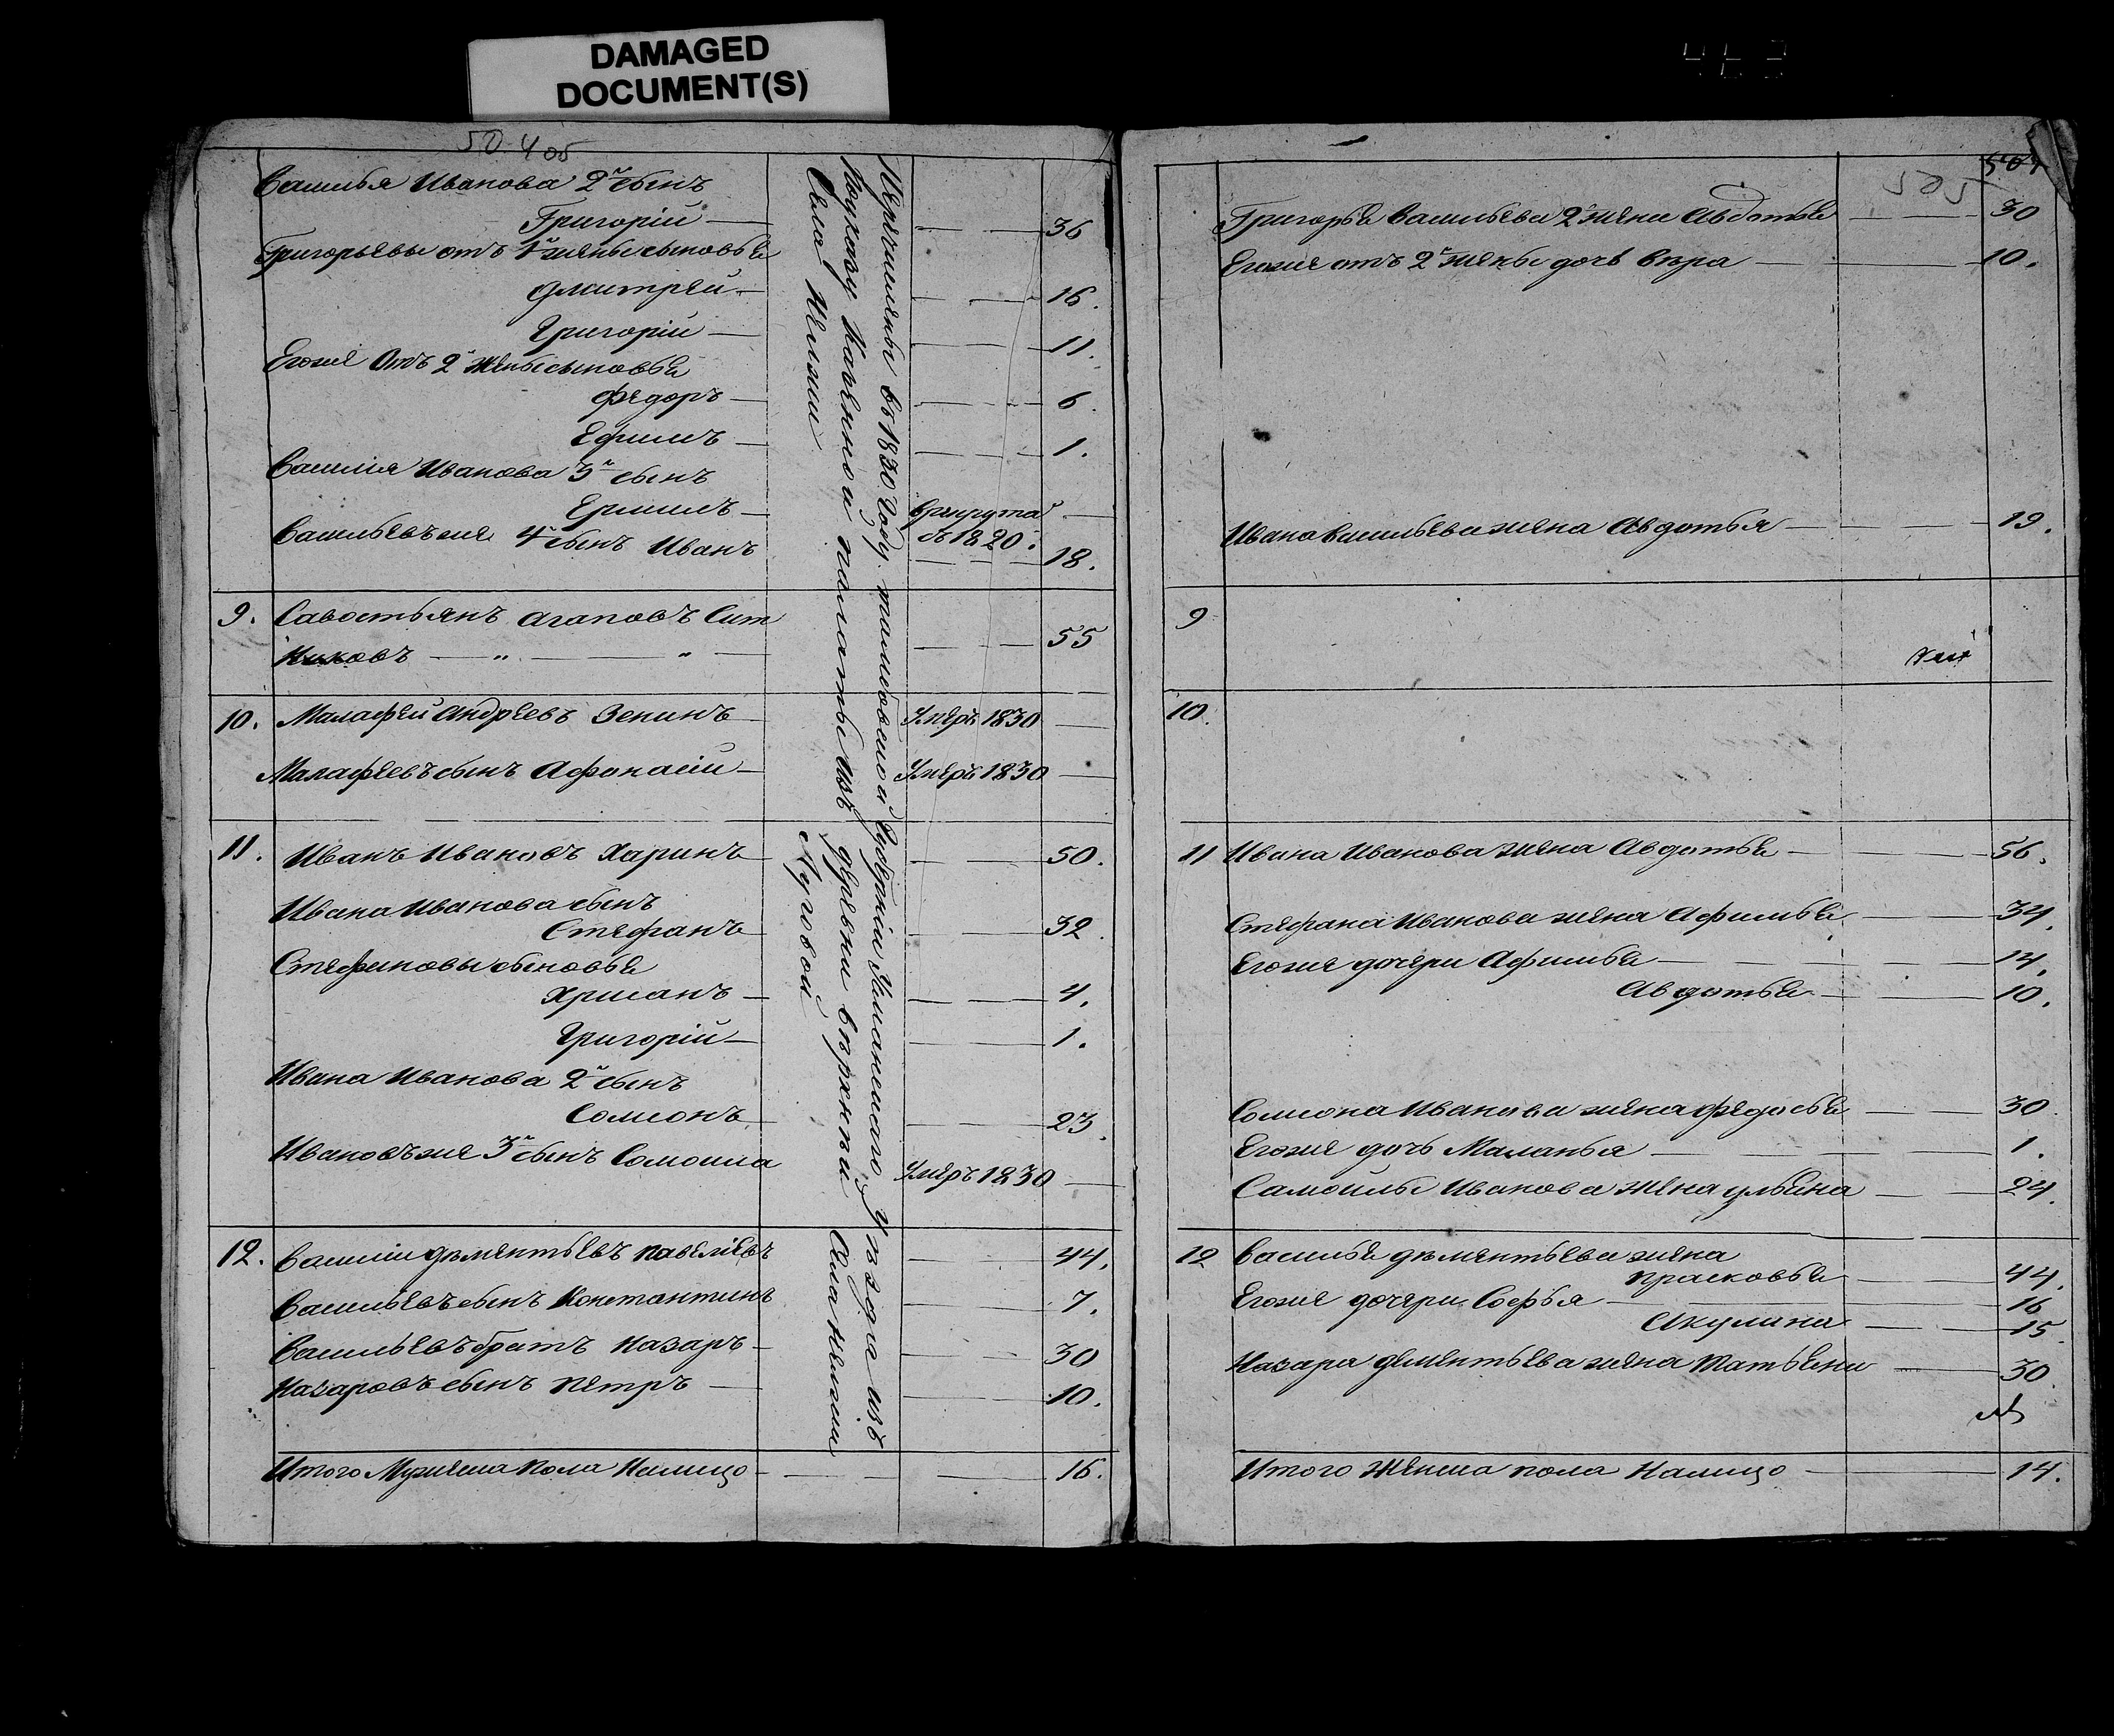 DAMAGED
DOCUMENT(S)
50 405
Василья Иванова 2й сынъ
Григорій — 36
Григорьевы отъ 1й жены сыновья
Дмитрей — 16.
Григорій — 11.
Егоже отъ 2й жены сыновья
Федоръ — 6.
Ефимъ — 1.
Василия Иванова 3й сынъ
Ермилъ — в рекрута
съ 1820.
Васильевъ же 4й сынъ Иванъ — 18.
9. Савостьянъ Агаповъ Сит
никовъ — „ — „ — 55
10. Малафей Андреевъ Зенинъ — Умеръ 1830
Малафеевъ сынъ Афонасій — Умеръ 1830
11. Иванъ Ивановъ Харинъ — 50.
Ивана Иванова сынъ
Стефанъ — 32.
Стефановы сыновья
Хрисанъ — 4.
Григорій — 1.
Ивана Иванова 2й сынъ
Сомионъ — 23.
Ивановъ же 3й сынъ Сомоила — Умеръ 1830
12. Василій Дементьевъ
Васильевъ сынъ Константинъ — 7.
44.
Васильевъ братъ Назаръ — 30
Назаровъ сынъ Петръ — 10.
Итого Мужеска пола Налицо — 16.
в 1830 Году. тамбовской Губерніи Усманскаго Уезда изъ
Села
казенной палаты изъ деревни верхней
Луговой
505
504
Григорья Васильева 2я жена Авдотья — 30
Егоже отъ 2й жены дочь Вера — 10.
Ивана Васильева жена Авдотья — 19.
9
10.
11 Ивана Иванова жена Авдотья — 56.
Стефана Иванова жена Афимья — 34.
Егоже дочери Афимья — 14.
Авдотья — 10.
Сомиона Иванова жена Федосья — 30
Егоже дочь Маланья — 1.
Самоилы Иванова жена Ульяна — 24.
12 Василья Дементьева жена
Прасковья — 44.
Егоже дочери Софья — 16
Акулина — 15.
Назара Дементьева жена Татьяна — 30
Итого Женска пола Налицо — 14.